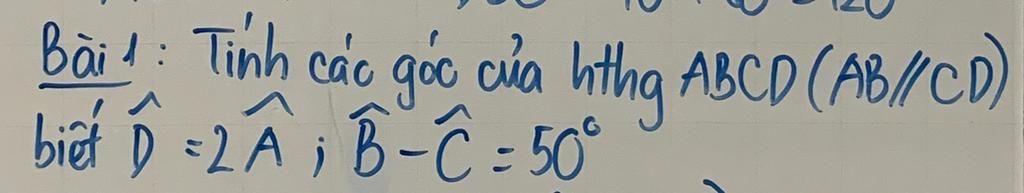 Bài 1: Tính các góc của hthg ABCD (AB//CD)
biết D̂ = 2Â ; B̂ - Ĉ = 50°